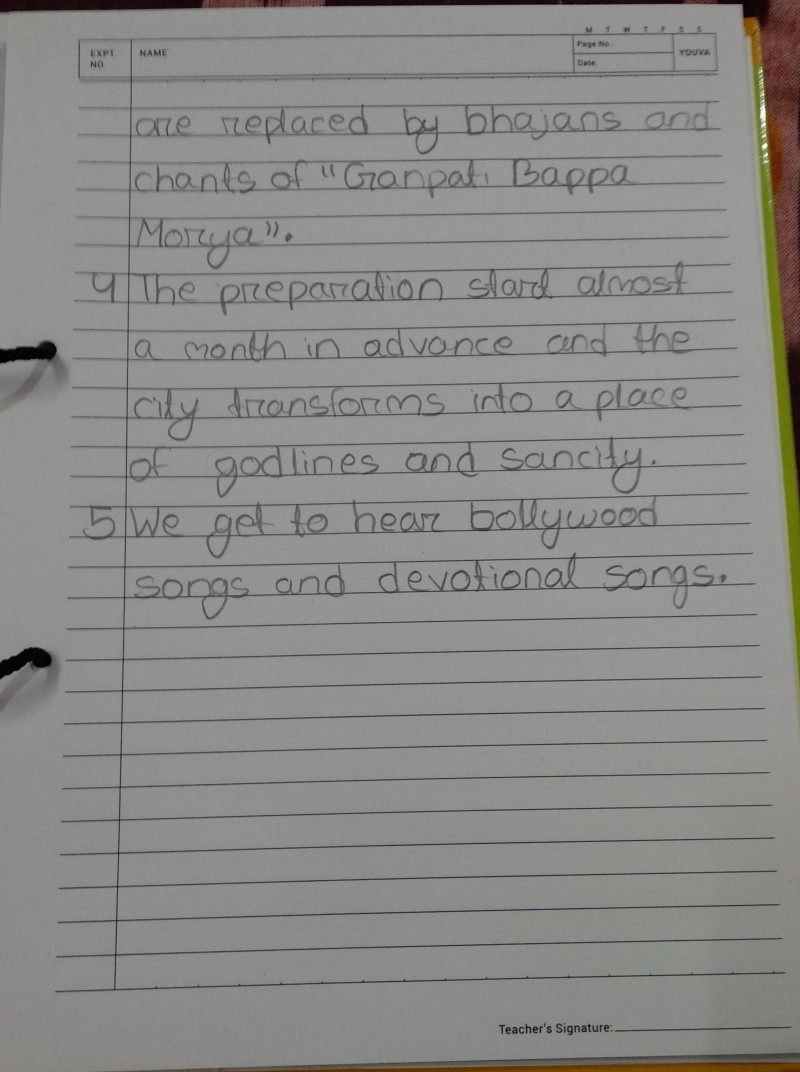 M T W T F S S
EXPT. NO.
NAME
Page No.
Date:
YOUVA
are replaced by bhajans and
chants of "Ganpati Bappa
Morya".
4 The preparation start almost
a month in advance and the
city transforms into a place
of godlines and sancity.
5 We get to hear bollywood
songs and devotional songs.
Teacher's Signature: